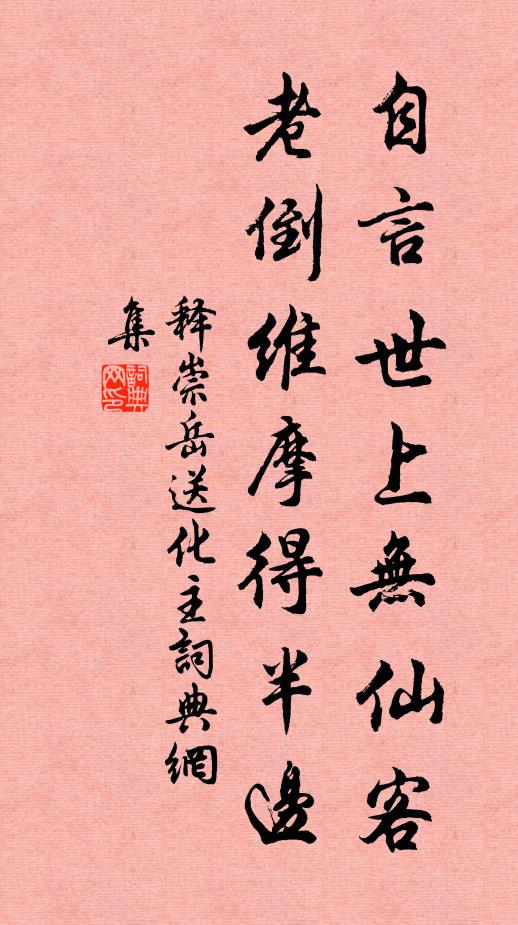 自言世上無仙客
老倒維摩得半邊
释崇岳送化主詞典網
集
詞典
网印